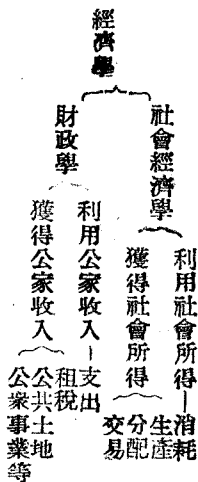 經濟學
社會經濟學
利用社會所得—消耗
獲得社會所得
生產
分配
交易
財政學
利用公家收入—支出
獲得公家收入
租稅
公共土地
公衆事業等